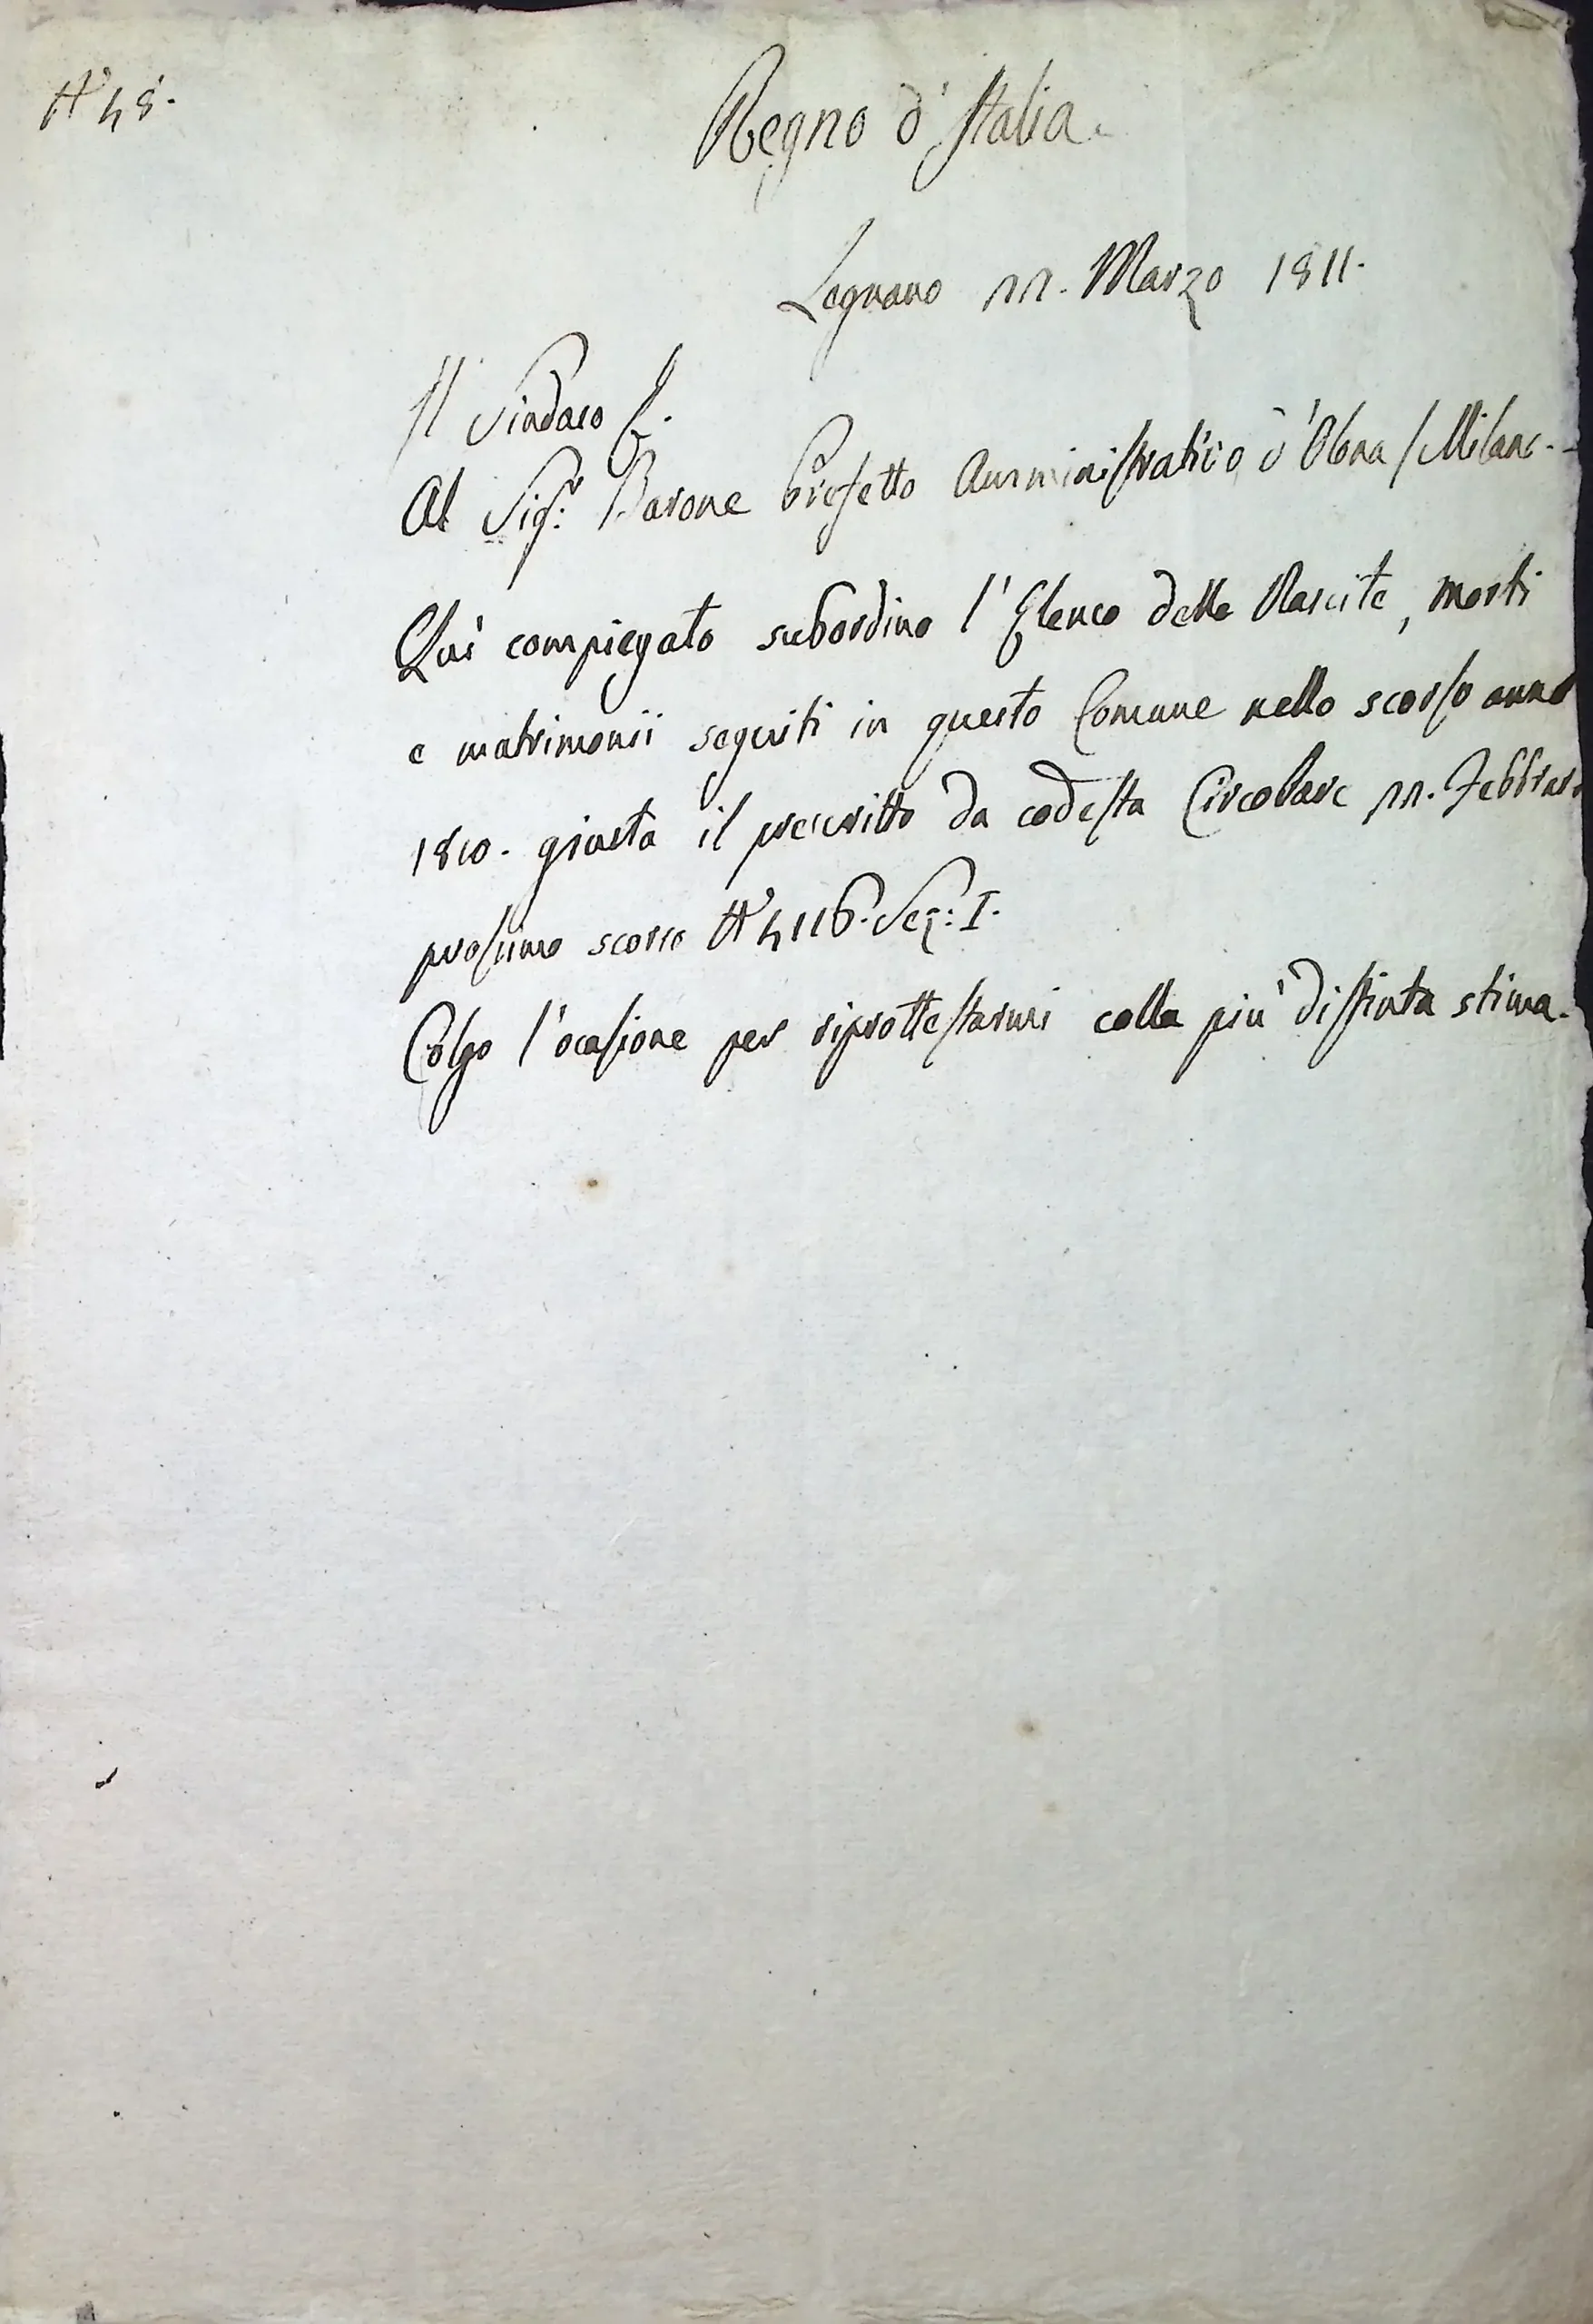 N° 48.
Regno d'Italia.
Legnano 22. Marzo 1811.
Il Sindaco
Al Sig.r Barone Prefetto Amministrativo d'Olona / Milano.
Quì compiegato subordino l'Elenco delle Nascite, morti
e matrimonii seguiti in questo Comune nello scorso anno
1810. giusta il prescritto da codesta Circolare 22. Febbraro
prossimo scorso N° 4116. Sez: I.
Colgo l'ocasione per riprottestarmi colla più distinta stima.